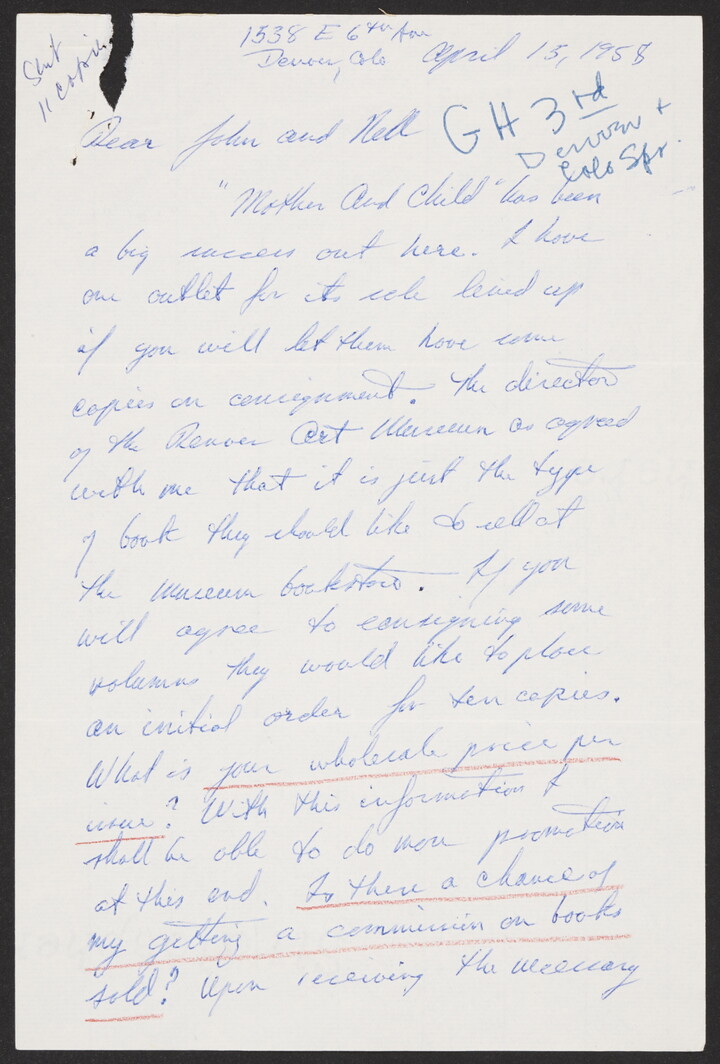 Sent
11 copies
1538 E 6th Ave
Denver, Colo April 15, 1958
GH 3rd
Denver +
Colo Spr.
Dear John and Nell
"Mother and Child" has been
a big success out here. I have
one outlet for its sale lined up
if you will let them have some
copies on consignment. The director
of the Denver Art Museum as agreed
with me that it is just the type
of book they should like to sell at
the museum bookstore. If you
will agree to consigning some
volumns they would like to place
an initial order for ten copies.
What is your wholesale price per
issue? With this information I
shall be able to do more promotion
at this end. Is there a chance of
my getting a commission on books
sold? Upon receiving the necessary